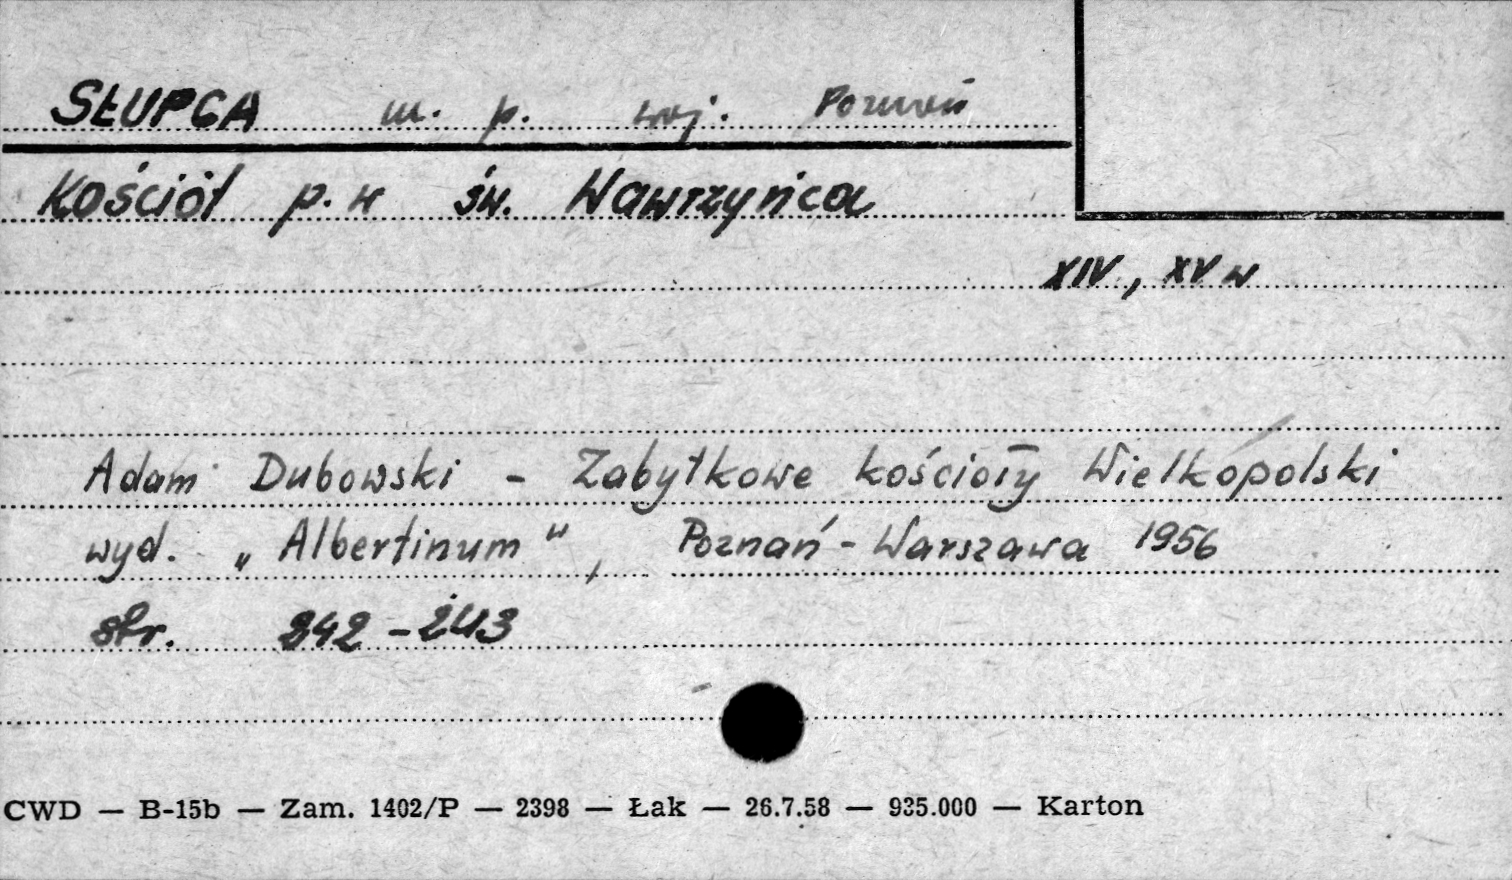 SŁUPCA m. p. woj. Poznań
Kościół p.w św. Wawrzyńca
XIV, XV w
Adam Dubowski - Zabytkowe kościoły Wielkopolski
wyd. „Albertinum", Poznań - Warszawa 1956
str. 242 - 243
CWD — B-15b — Zam. 1402/P — 2398 — Łak — 26.7.58 — 935.000 — Karton